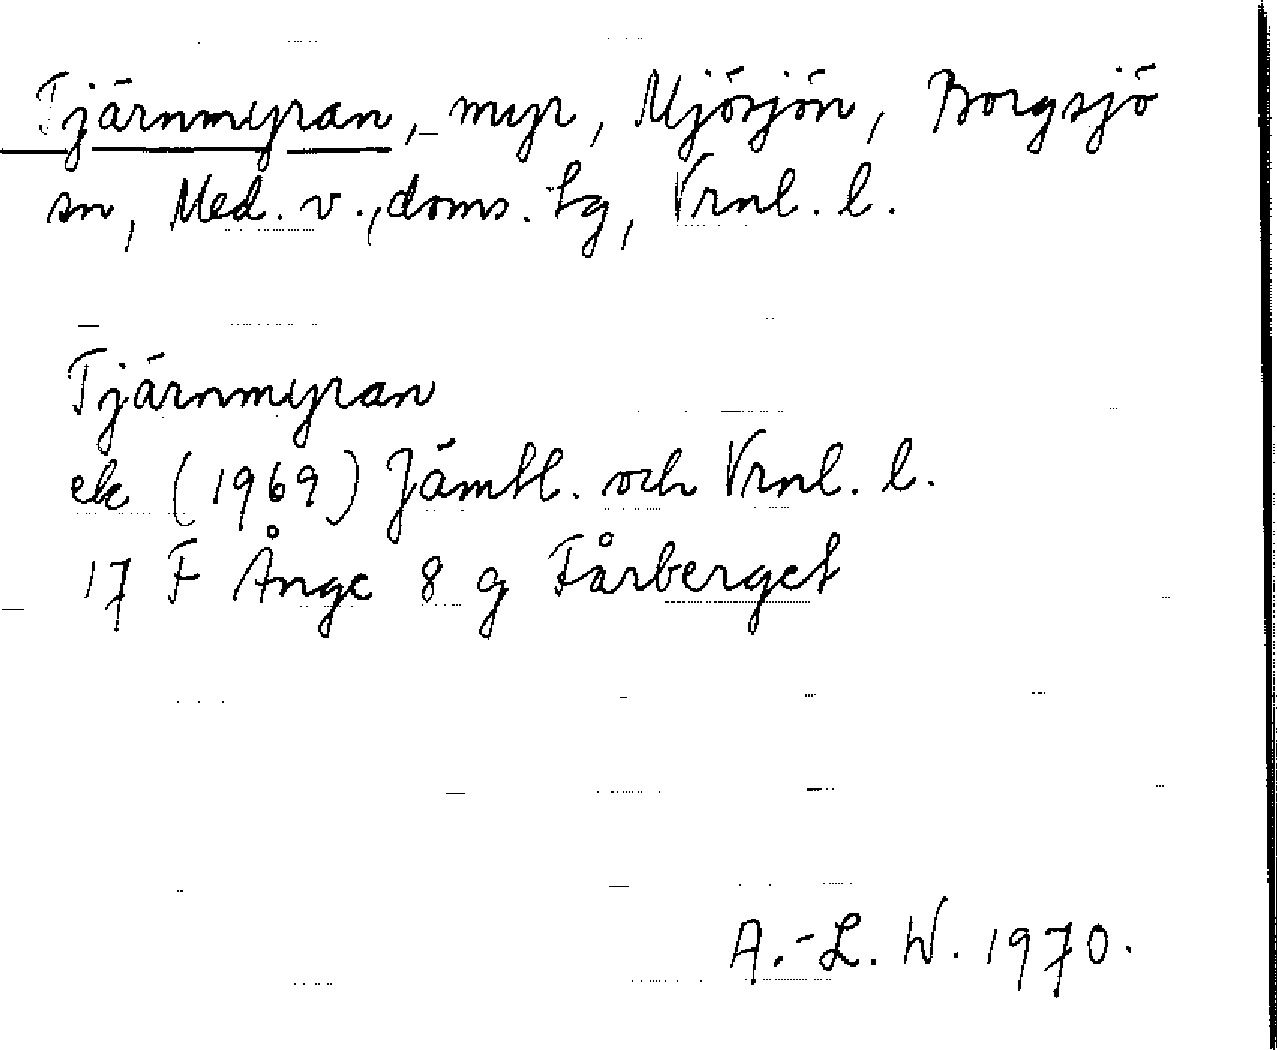 Tjärnmyran, myr, Mjösjön, Borgsjö
sn, Med. v., doms. hg, Vrnl. l.
Tjärnmyran
ek (1969) Jämtl. och Vrnl. l.
17 F Ånge 8 g Fårberget
A.-L. W. 1970.